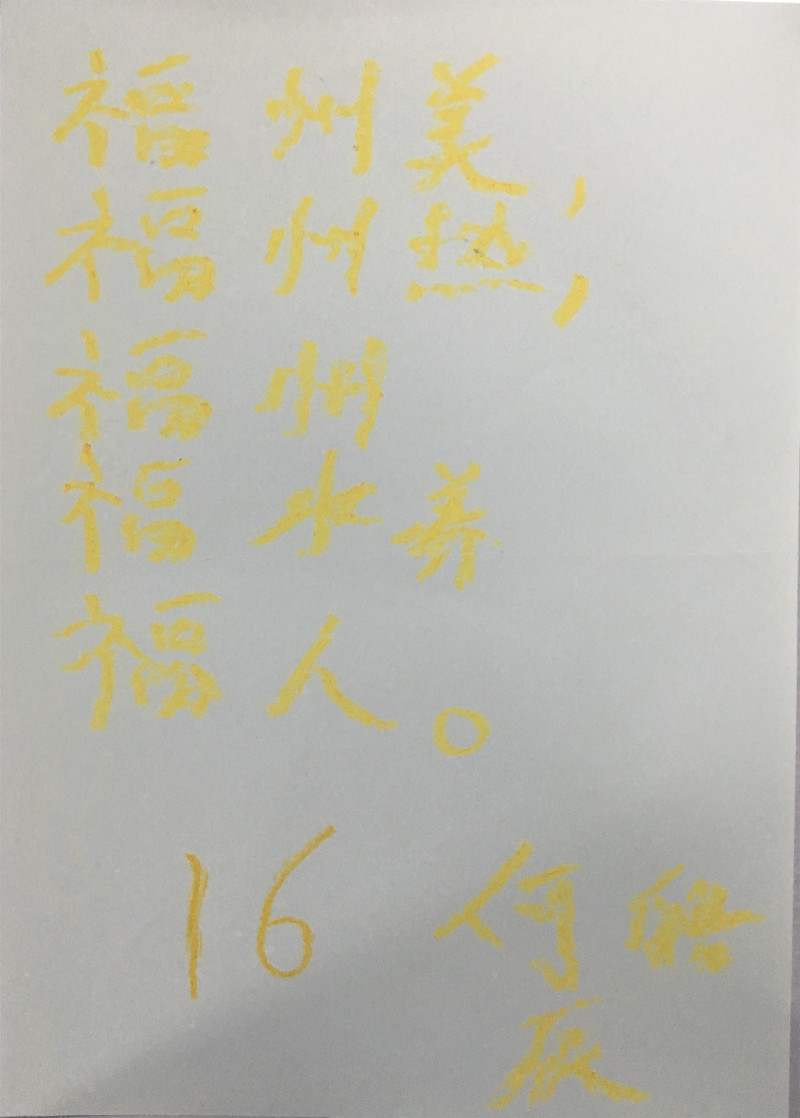 福州美,
福州热,
福州
福水养
福人。
16 何
辰